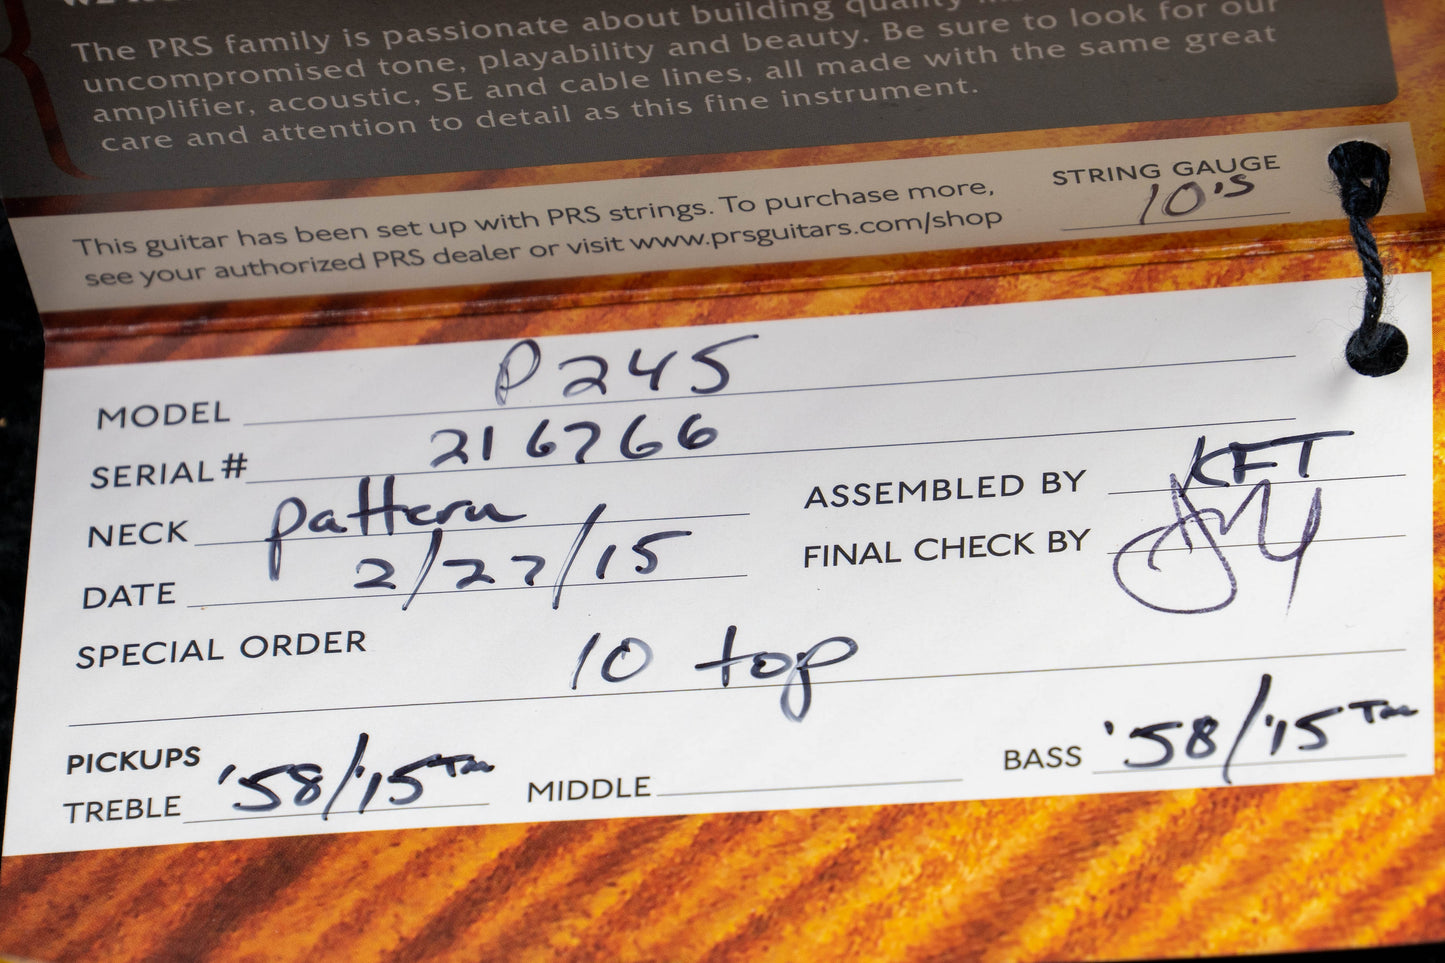 The PRS family is passionate about building quality
uncompromised tone, playability and beauty. Be sure to look for our
amplifier, acoustic, SE and cable lines, all made with the same great
care and attention to detail as this fine instrument.
This guitar has been set up with PRS strings. To purchase more,
see your authorized PRS dealer or visit www.prsguitars.com/shop
STRING GAUGE
10's
MODEL P245
SERIAL# 216766
NECK pattern
ASSEMBLED BY KFT
DATE 2/27/15
FINAL CHECK BY
SPECIAL ORDER
10 top
PICKUPS
TREBLE '58/'15 TM
MIDDLE
BASS '58/'15 TM